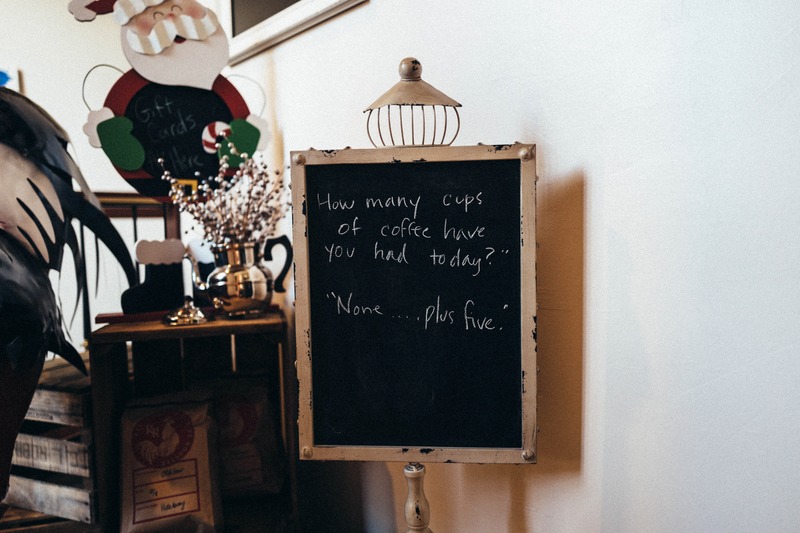 Gift
Cards
Here
How many cups
of coffee have
you had today?"
"None.....plus five."